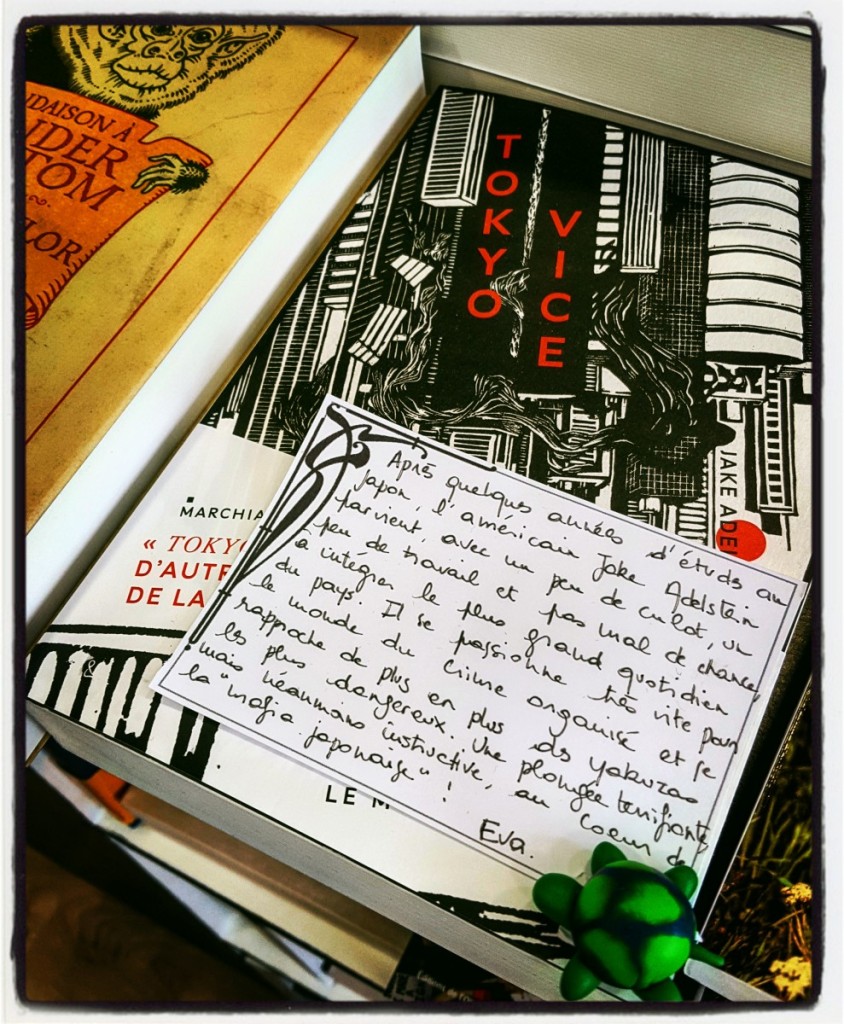 DAISON À
IDER
TOM
LOR
TOKYO
VICE
JAKE ADEL
MARCHIA
« TOKYO
D'AUTRE
DE LA
&
LE M
Après quelques années d'études au
Japon, l'américain Jake Adelstein
parvient, avec un peu de culot, un
peu de travail et pas mal de chance,
à intégrer le plus grand quotidien
du pays. Il se passionne très vite pour
le monde du crime organisé et se
rapproche de plus en plus des yakuzas
les plus dangereux. Une plongée terrifiante,
mais néanmoins instructive, au coeur de
la "mafia japonaise" !
Eva.